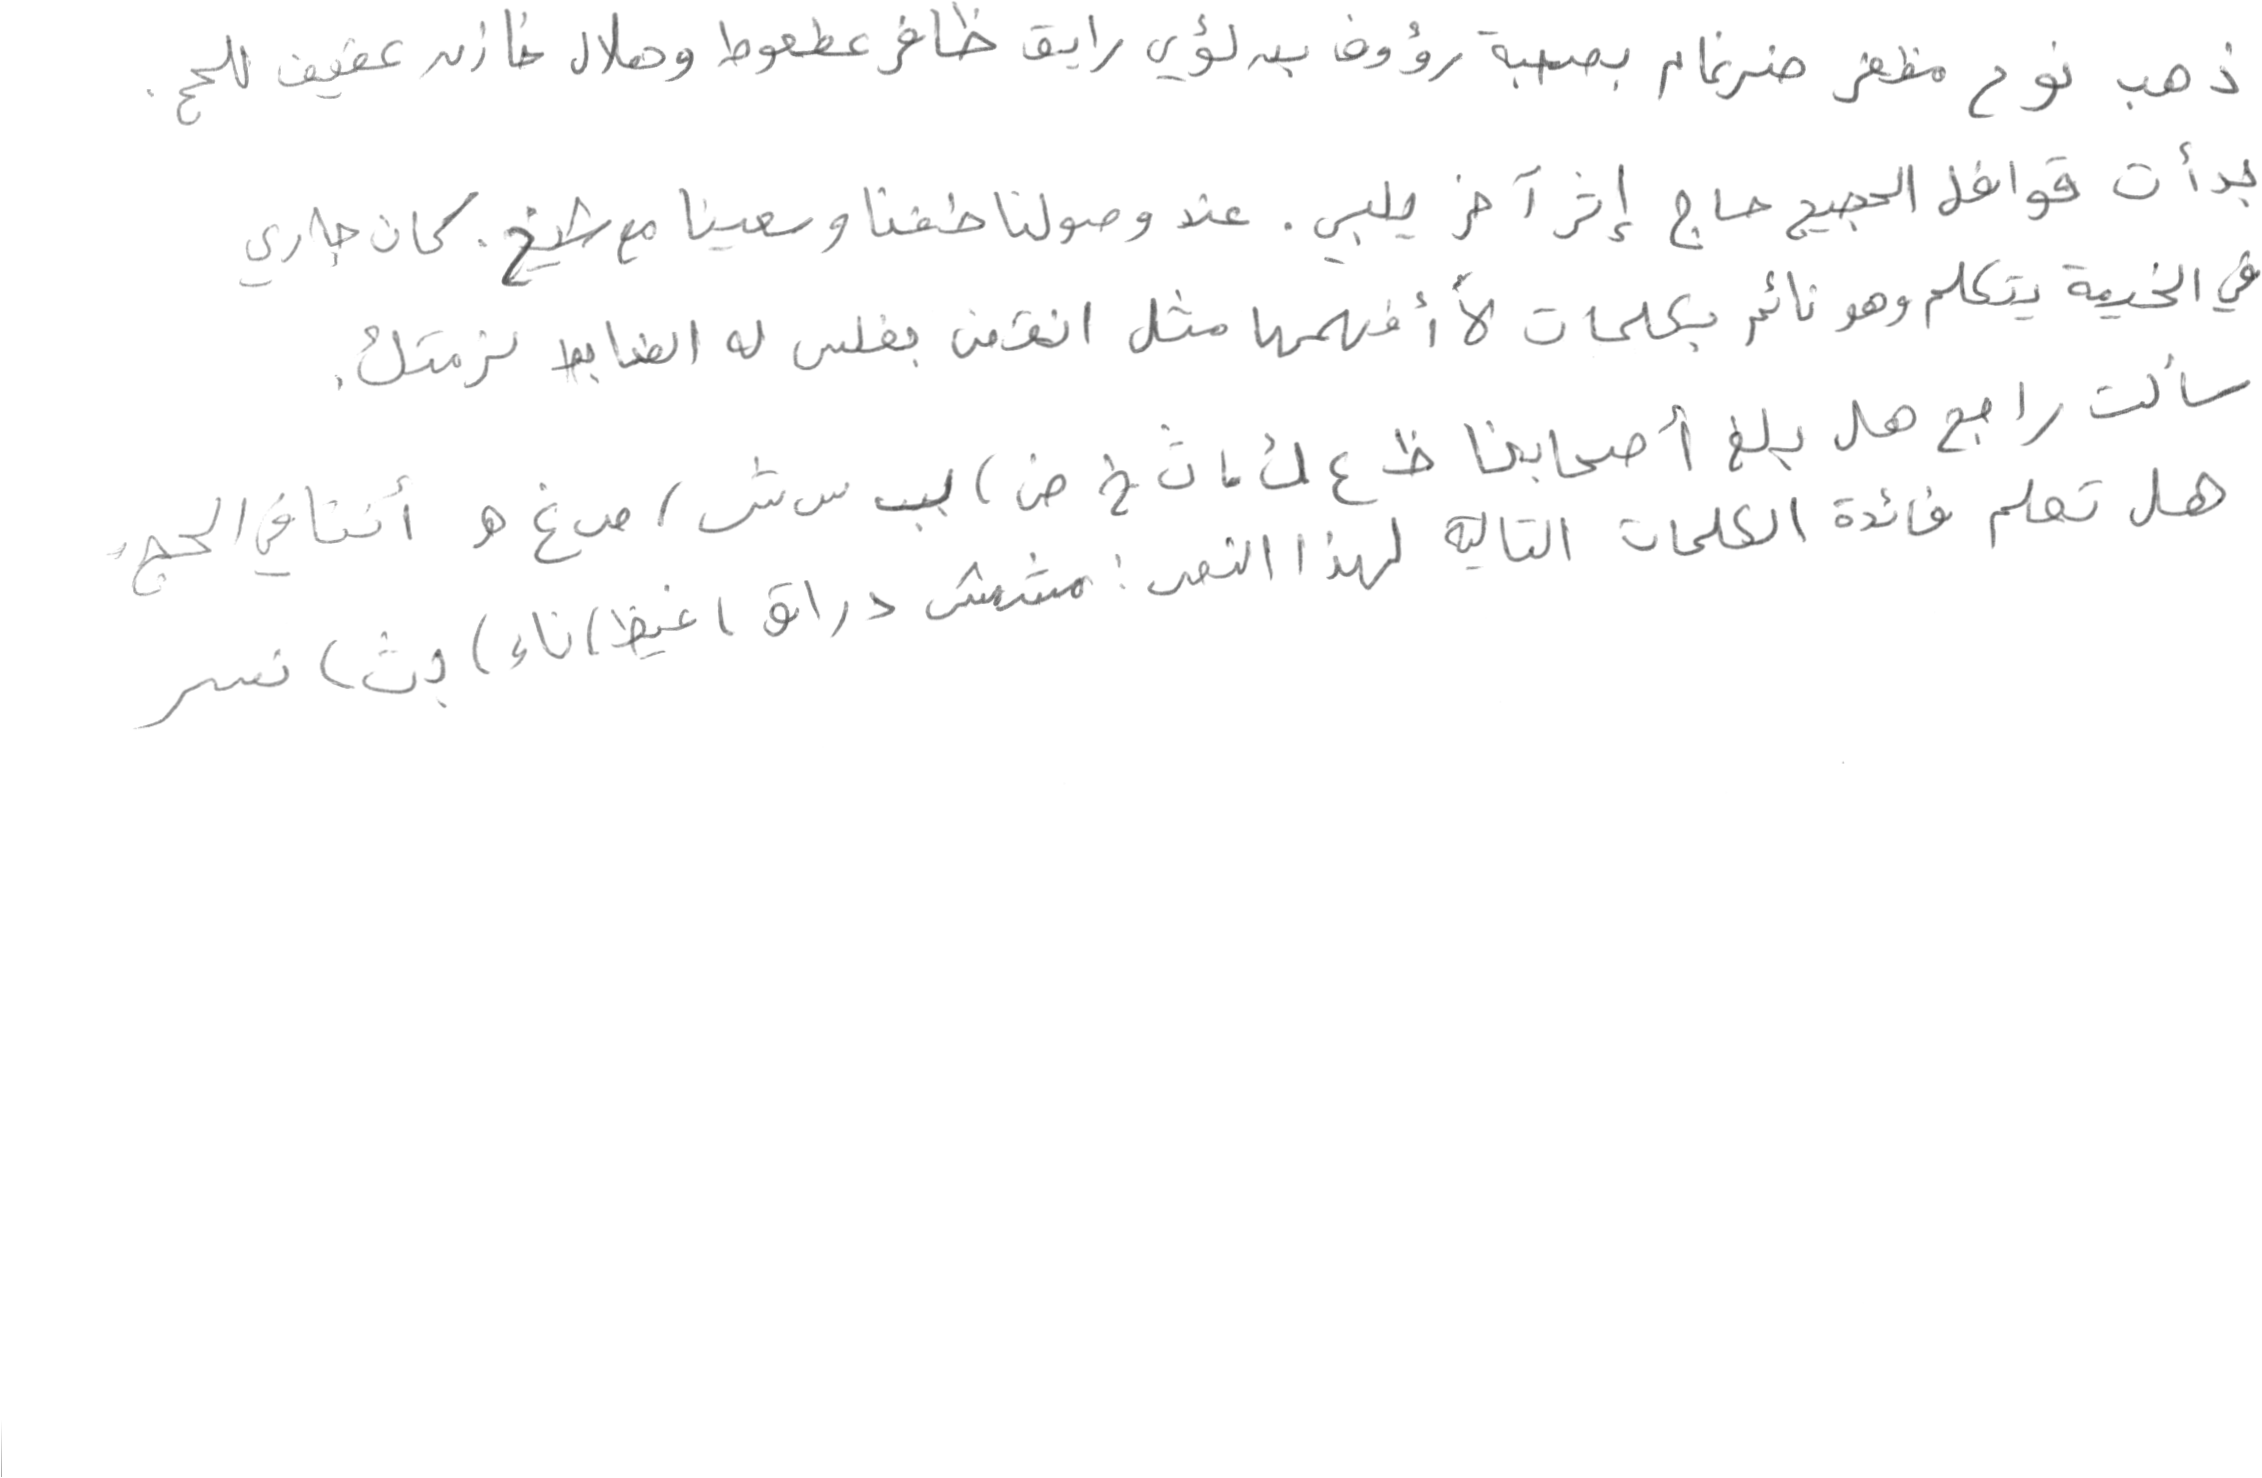 ذهب نوح مظفر ضرغام بصحبة رؤوف بن لؤي رايق ظافر عطعوط وهلال خازن عفيف للحج.
بدأت قوافل الحجيج حاج إثر آخر يلبي. عند وصولنا طفنا وسعينا مع شيخ. كان جاري
في الخيمة يتكلم وهو نائم بكلمات لا أفهمها مثل انقرض بفلس له الضابط لزمتك.
سألت رابح هل بلغ أصحابنا ظ ع ك ث خ ض ) لبب س ش ) ص غ ه أثنافي الحج
هل تعلم فائدة الكلمات التالية لهذا النص: مشمش دراق ) غيظ ) ناء ) بث ) نسر